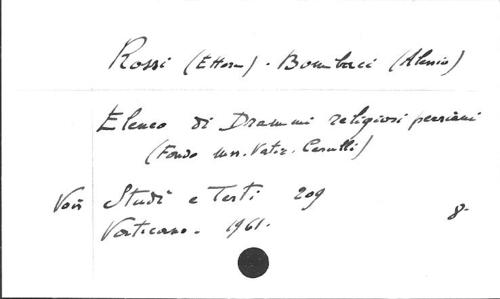 Rossi (Ettore). Bombaci (Alessio)
Elenco di Drammi religiosi persiani
(Fondo mss. Vatic. Cerulli)
Voir Studi e Testi 209
Vaticano. 1961.
8-